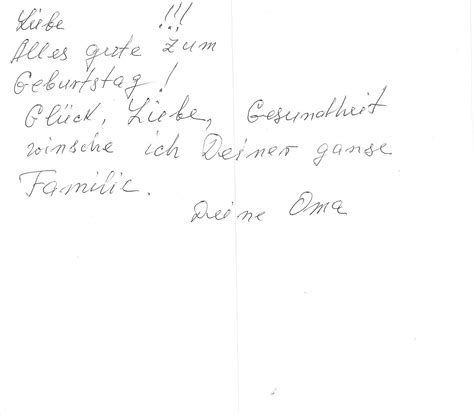 Liebe !!!
Alles gute zum
Geburtstag!
Glück, Liebe, Gesundheit
winsche ich Deiner ganse
Familie.
Deine Oma